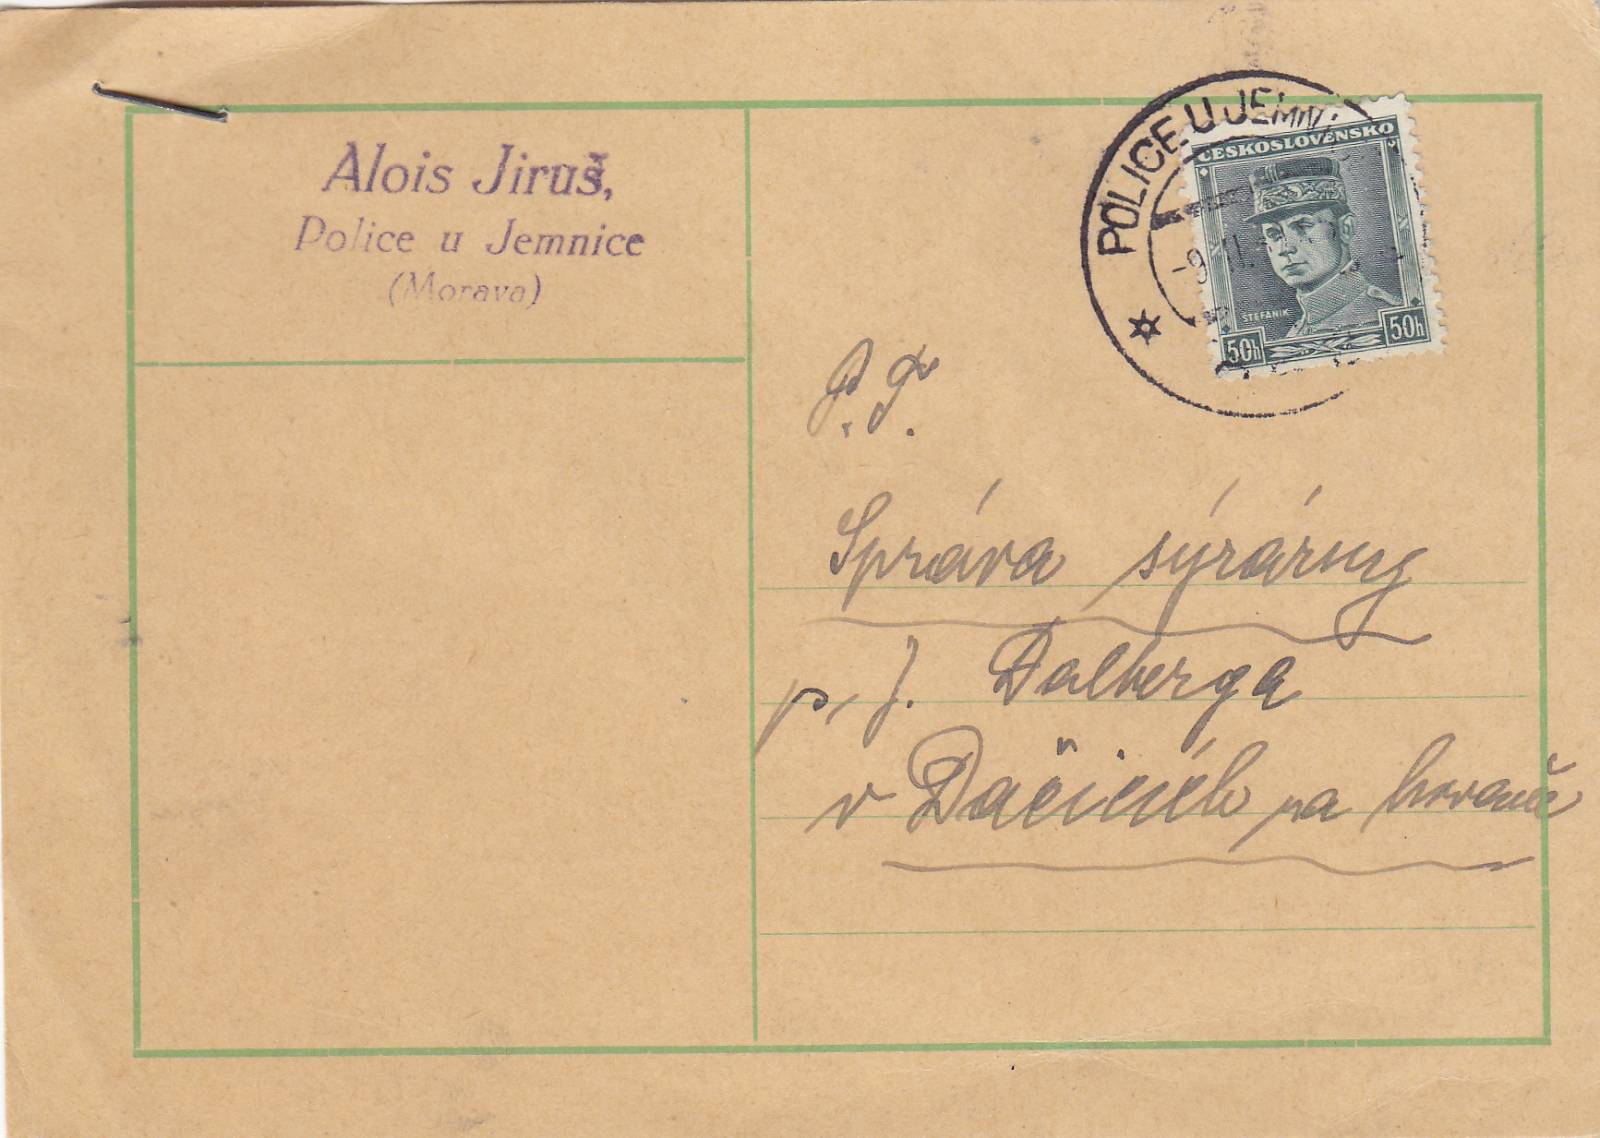 Alois Jiruš,
Police u Jemnice
(Morava)
POLICE U JEMNI
-9. II.
ČESKOSLOVENSKO
ŠTEFÁNIK
50h 50h
P. T.
Správa sýrárny
p. J. Dalberga
v Dačicích na Moravě